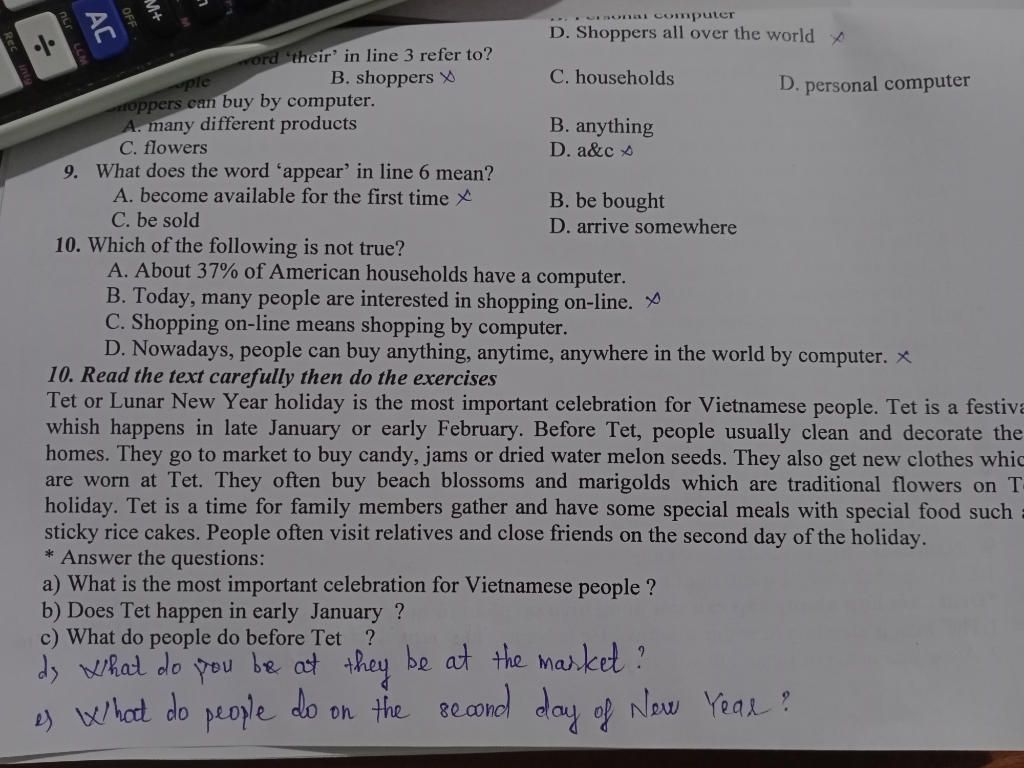 Rec
nCr
intg
÷
LLM
AC
OFF
M+
M
computer
D. Shoppers all over the world
'their' in line 3 refer to?
B. shoppers
C. households
D. personal computer
can buy by computer.
A. many different products
B. anything
C. flowers
D. a&c
9. What does the word 'appear' in line 6 mean?
A. become available for the first time
B. be bought
C. be sold
D. arrive somewhere
10. Which of the following is not true?
A. About 37% of American households have a computer.
B. Today, many people are interested in shopping on-line.
C. Shopping on-line means shopping by computer.
D. Nowadays, people can buy anything, anytime, anywhere in the world by computer.
10. Read the text carefully then do the exercises
Tet or Lunar New Year holiday is the most important celebration for Vietnamese people. Tet is a festiva
whish happens in late January or early February. Before Tet, people usually clean and decorate the
homes. They go to market to buy candy, jams or dried water melon seeds. They also get new clothes whic
are worn at Tet. They often buy beach blossoms and marigolds which are traditional flowers on T
holiday. Tet is a time for family members gather and have some special meals with special food such
sticky rice cakes. People often visit relatives and close friends on the second day of the holiday.
* Answer the questions:
a) What is the most important celebration for Vietnamese people ?
b) Does Tet happen in early January ?
c) What do people do before Tet ?
d) What do you be at they be at the market ?
e) What do people do on the second day of New Year ?